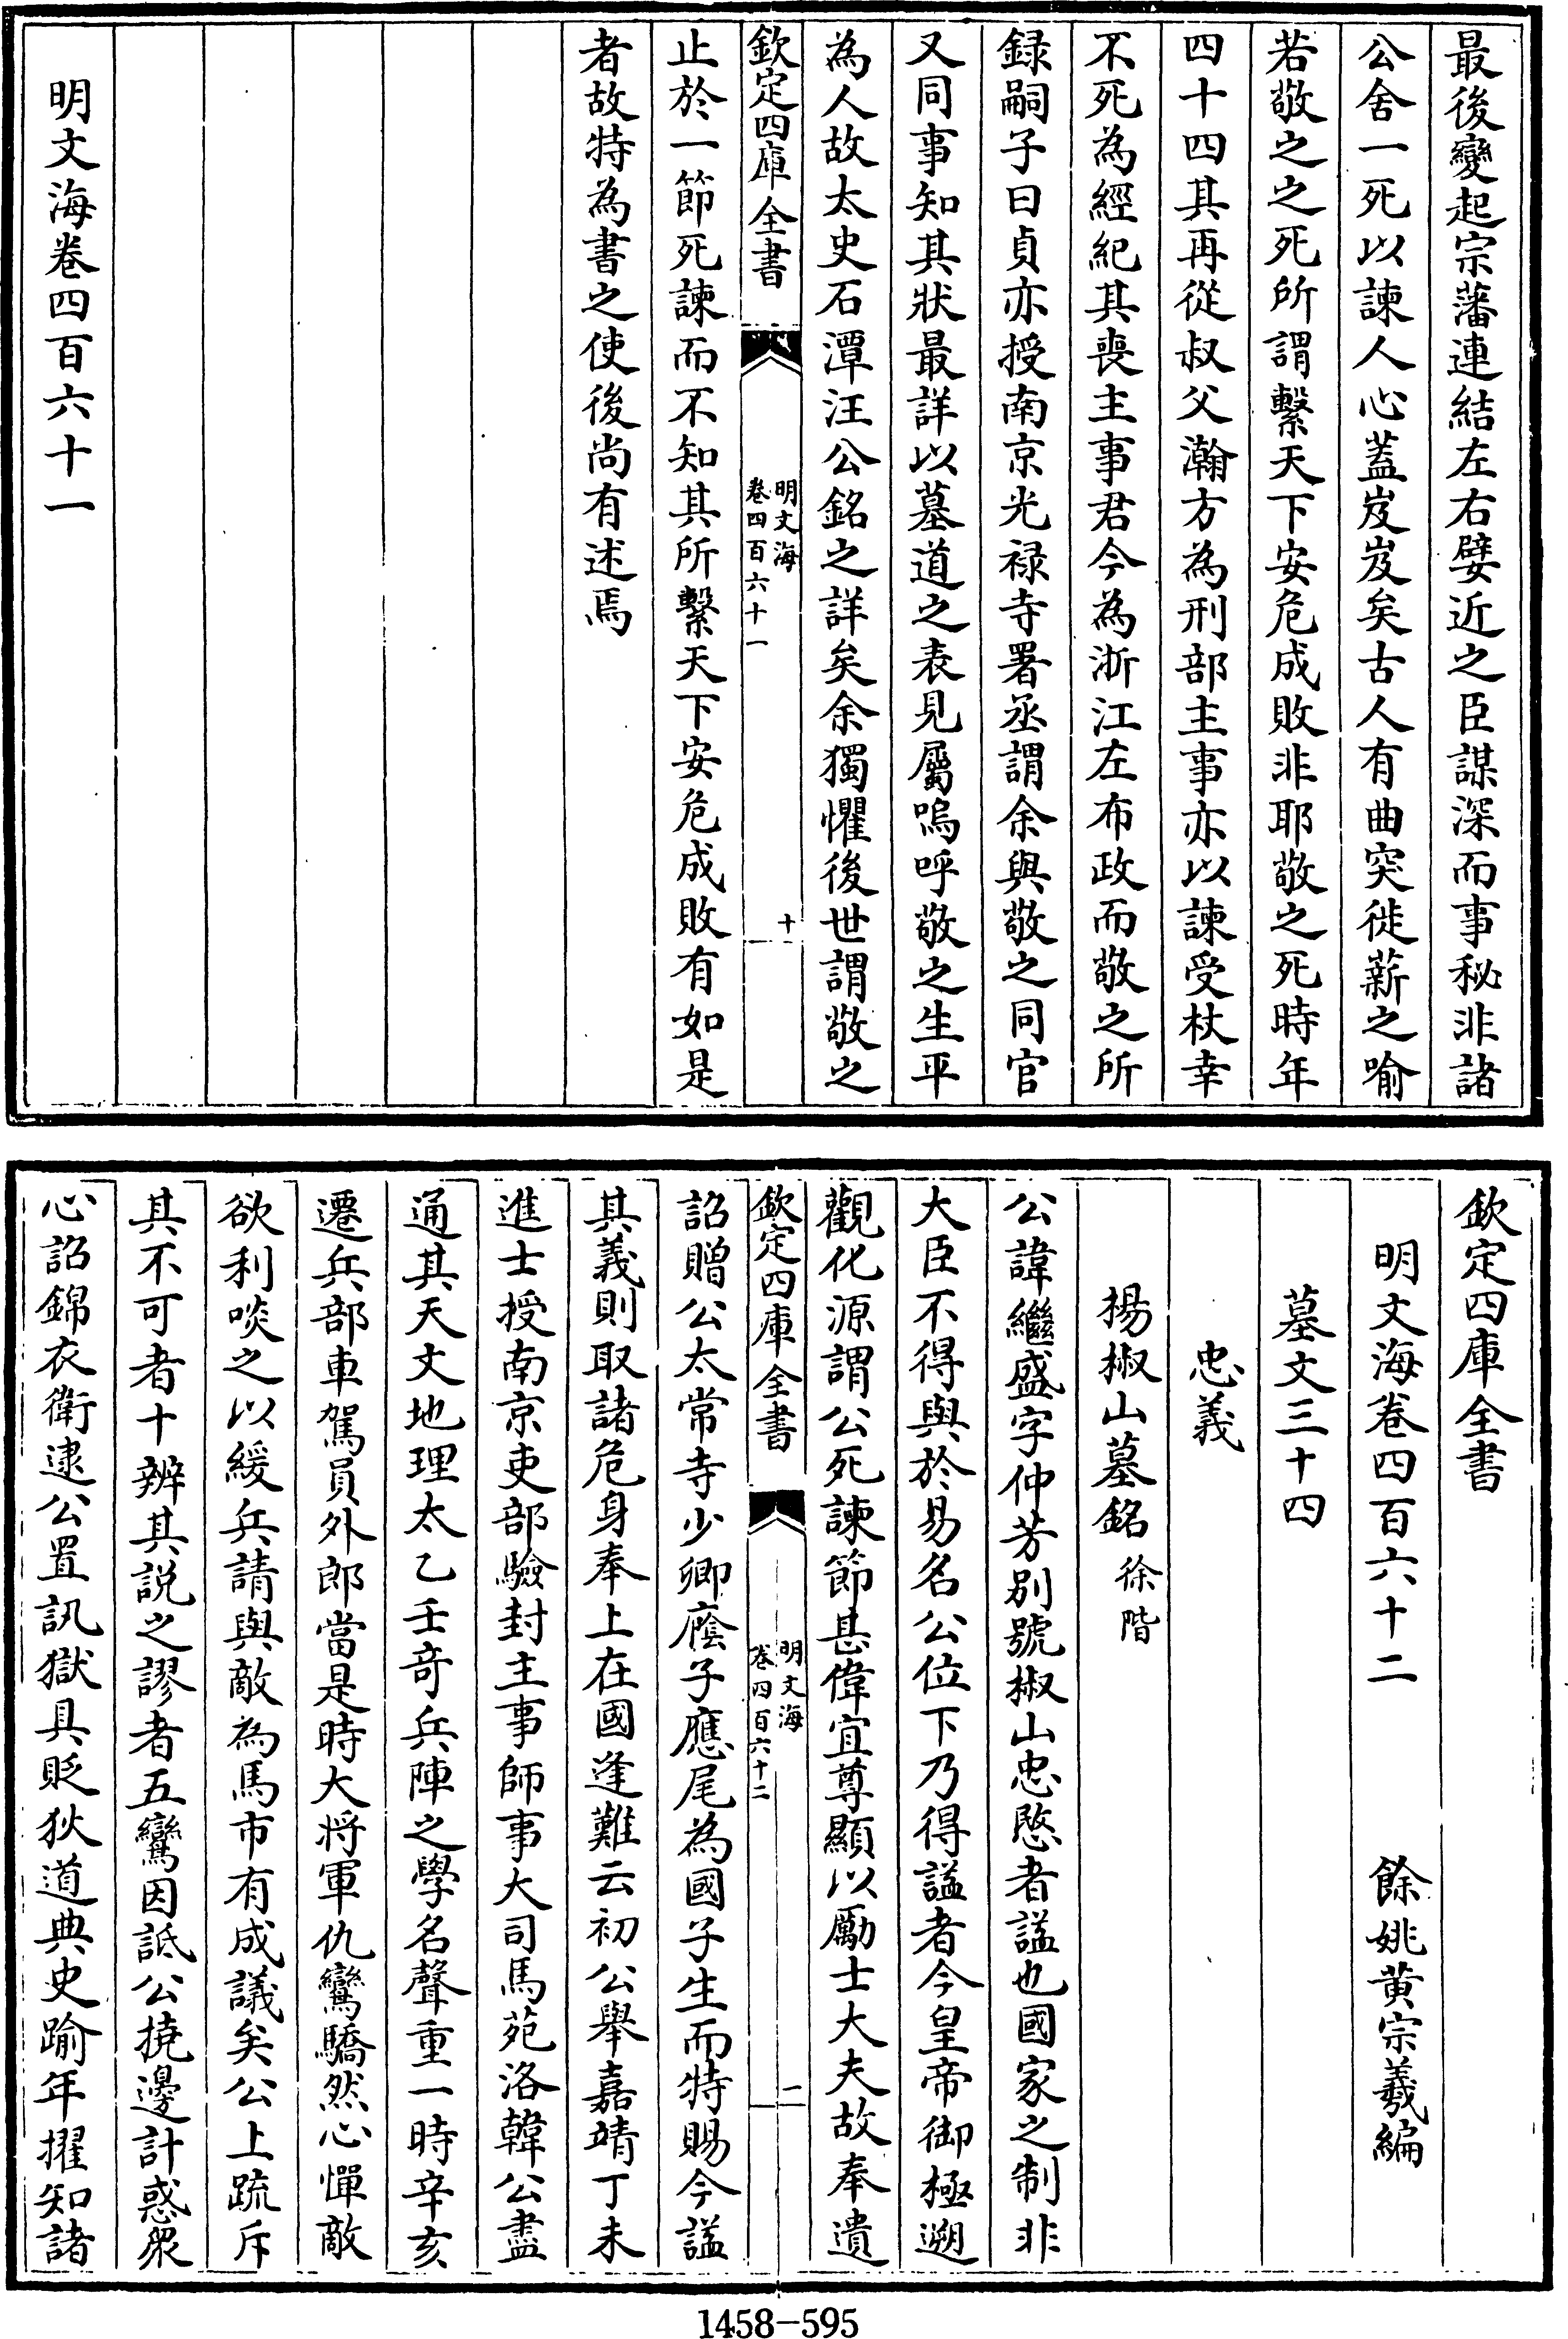 最後變起宗藩連結左右嬖近之臣謀深而事秘非諸
公舍一死以諫人心蓋岌岌矣古人有曲突徙薪之喻
若敬之之死所謂繫天下安危成敗非耶敬之死時年
四十四其再從叔父瀚方為刑部主事亦以諫受杖幸
不死為經紀其喪主事君今為浙江左布政而敬之所
録嗣子曰貞亦授南京光禄寺署丞謂余與敬之同官
又同事知其狀最詳以墓道之表見屬嗚呼敬之生平
為人故太史石潭汪公銘之詳矣余獨懼後世謂敬之
欽定四庫全書
明文海
卷四百六十一
十
止於一節死諫而不知其所繫天下安危成敗有如是
者故特為書之使後尚有述焉
明文海卷四百六十一
欽定四庫全書
明文海卷四百六十二
餘姚黄宗羲編
墓文三十四
忠義
楊椒山墓銘 徐階
公諱繼盛字仲芳别號椒山忠愍者諡也國家之制非
大臣不得與於易名公位下乃得諡者今皇帝御極遡
觀化源謂公死諫節甚偉宜尊顯以勵士大夫故奉遺
欽定四庫全書
明文海
卷四百六十二
二
詔贈公太常寺少卿廕子應尾為國子生而特賜今諡
其義則取諸危身奉上在國逢難云初公舉嘉靖丁未
進士授南京吏部驗封主事師事大司馬苑洛韓公盡
通其天文地理太乙壬奇兵陣之學名聲重一時辛亥
遷兵部車駕員外郎當是時大將軍仇鸞驕然心憚敵
欲利啖之以緩兵請與敵為馬市有成議矣公上疏斥
其不可者十辨其説之謬者五鸞因詆公撓邊計惑衆
心詔錦衣衛逮公置訊獄具貶狄道典史踰年擢知諸
1458-595